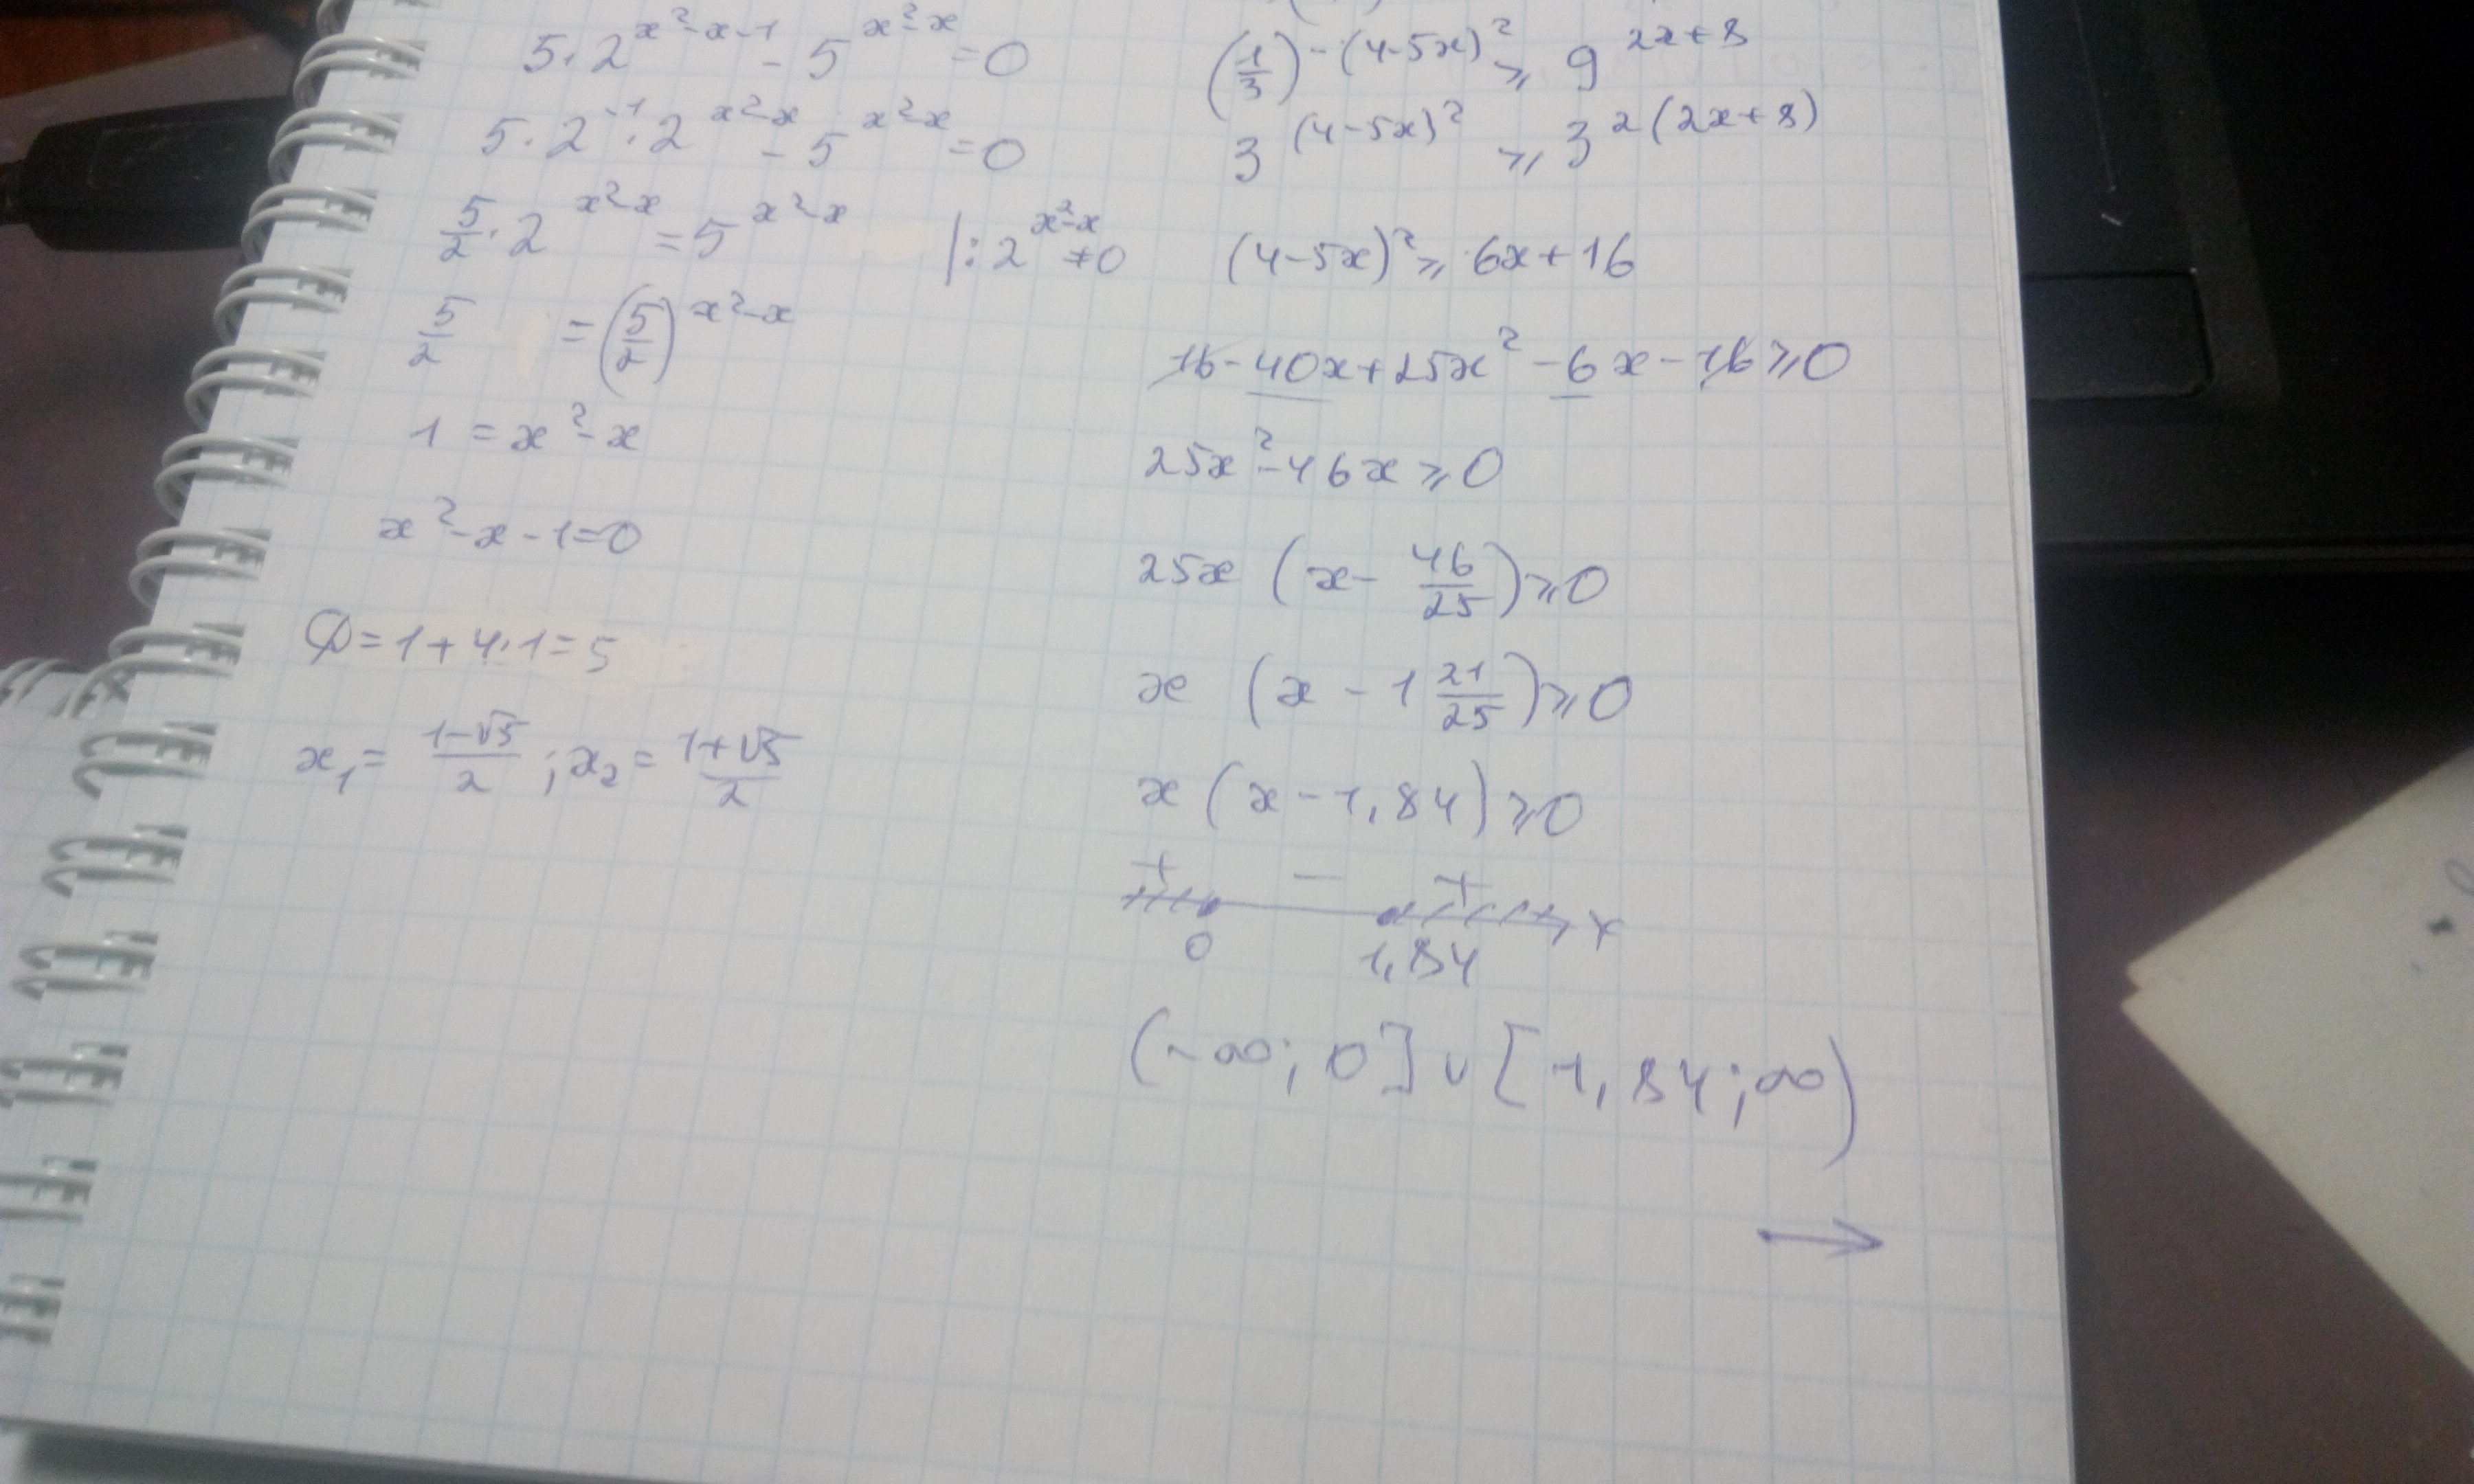 5·2^{x²-x-1} - 5^{x²-x} = 0
5·2^{-1}·2^{x²-x} - 5^{x²-x} = 0
\frac{5}{2}·2^{x²-x} = 5^{x²-x} |: 2^{x²-x} ≠ 0
\frac{5}{2} = (\frac{5}{2})^{x²-x}
1 = x²-x
x²-x-1=0
D=1+4·1=5
x₁ = \frac{1-√5}{2}; x₂ = \frac{1+√5}{2}
(\frac{1}{3})^{-(4-5x)²} ⩾ 9^{2x+8}
3^{(4-5x)²} ⩾ 3^{2(2x+8)}
(4-5x)² ⩾ 6x+16
16-40x+25x²-6x-16⩾0
25x²-46x⩾0
25x (x-\frac{46}{25})⩾0
x (x-1\frac{21}{25})⩾0
x(x-1,84)⩾0
+ - +
0 1,84 x
(-∞;0]∪[1,84;∞)
→